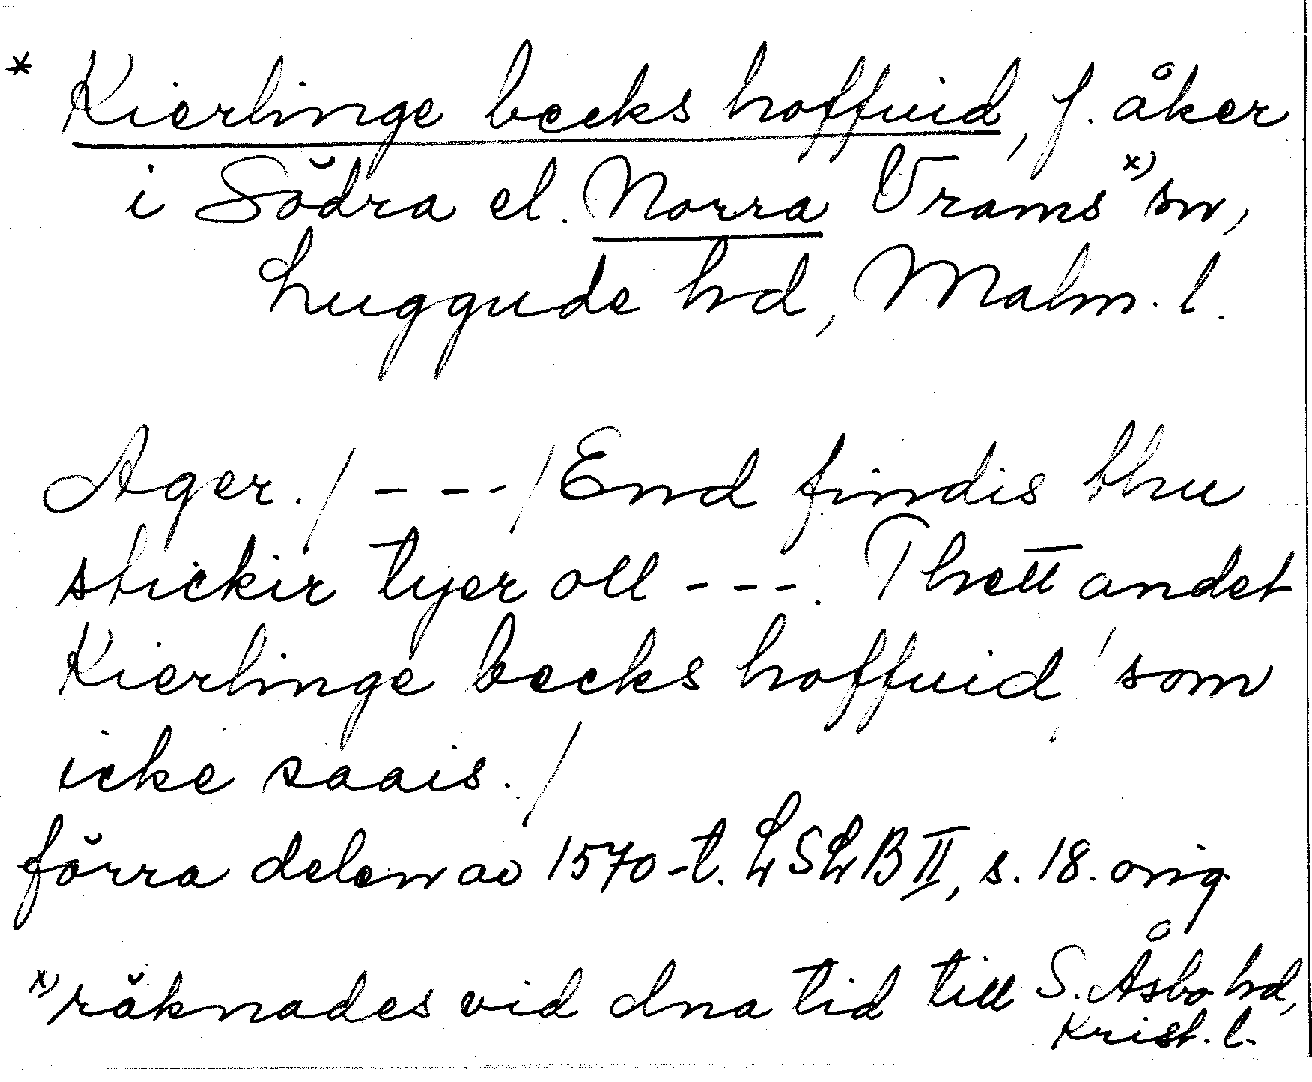 * Kierlinge becks hoffuid, f. åker
i Södra el. Norra Vrams x) sn,
Luggude hd, Malm. l.
Ager. / - - - / End findis thu
stickir tyer oll - - -. Thett andet
Kierlinge becks hoffuid / som
icke saais. /
förra delen av 1570-t. LSLB II, s. 18. orig
x) räknades vid dna tid till S. Åsbo hd,
Krist. l.